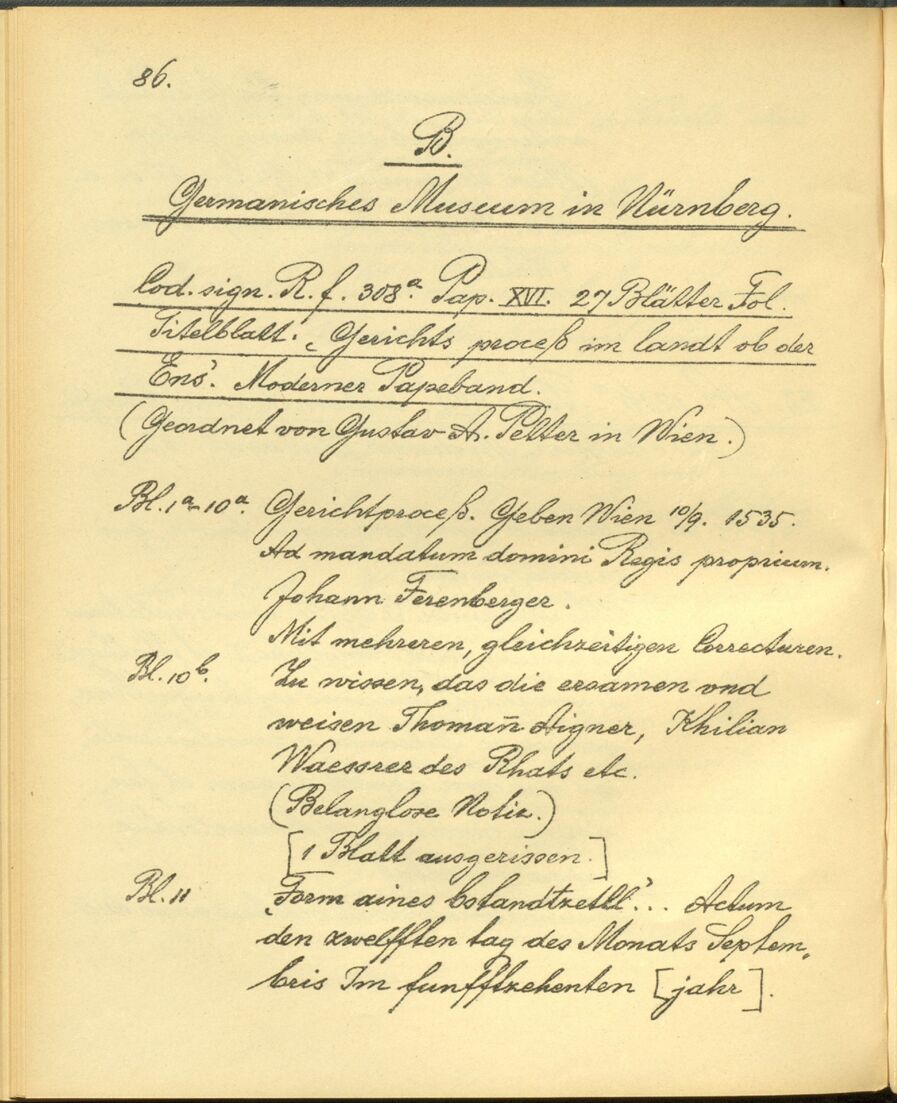 86.
B.
Germanisches Museum in Nürnberg.
Cod. sign. R. f. 308ª. Pap. XVI. 27 Blätter Fol.
Titelblatt: „Gerichts proceß im landt ob der
Ens“. Moderner Papeband.
(Geordnet von Gustav A. Petter in Wien.)
Bl. 1ª-10ª. Gerichtproceß. Geben Wien 10/9. 1535.
Ad mandatum domini Regis proprium.
Johann Ferenberger.
Mit mehreren, gleichzeitigen Correcturen.
Bl. 10b. Zu wissen, das die ersamen vnd
weisen Thomañ Aigner, Khilian
Waessrer des Rhats etc.
(Belanglose Notiz.)
[1 Blatt ausgerissen.]
Bl. 11 „Form aines bstandtzettl“... Actum
den zwelfften tag des Monats Septem„
bris Im funfftzehenten [jahr].